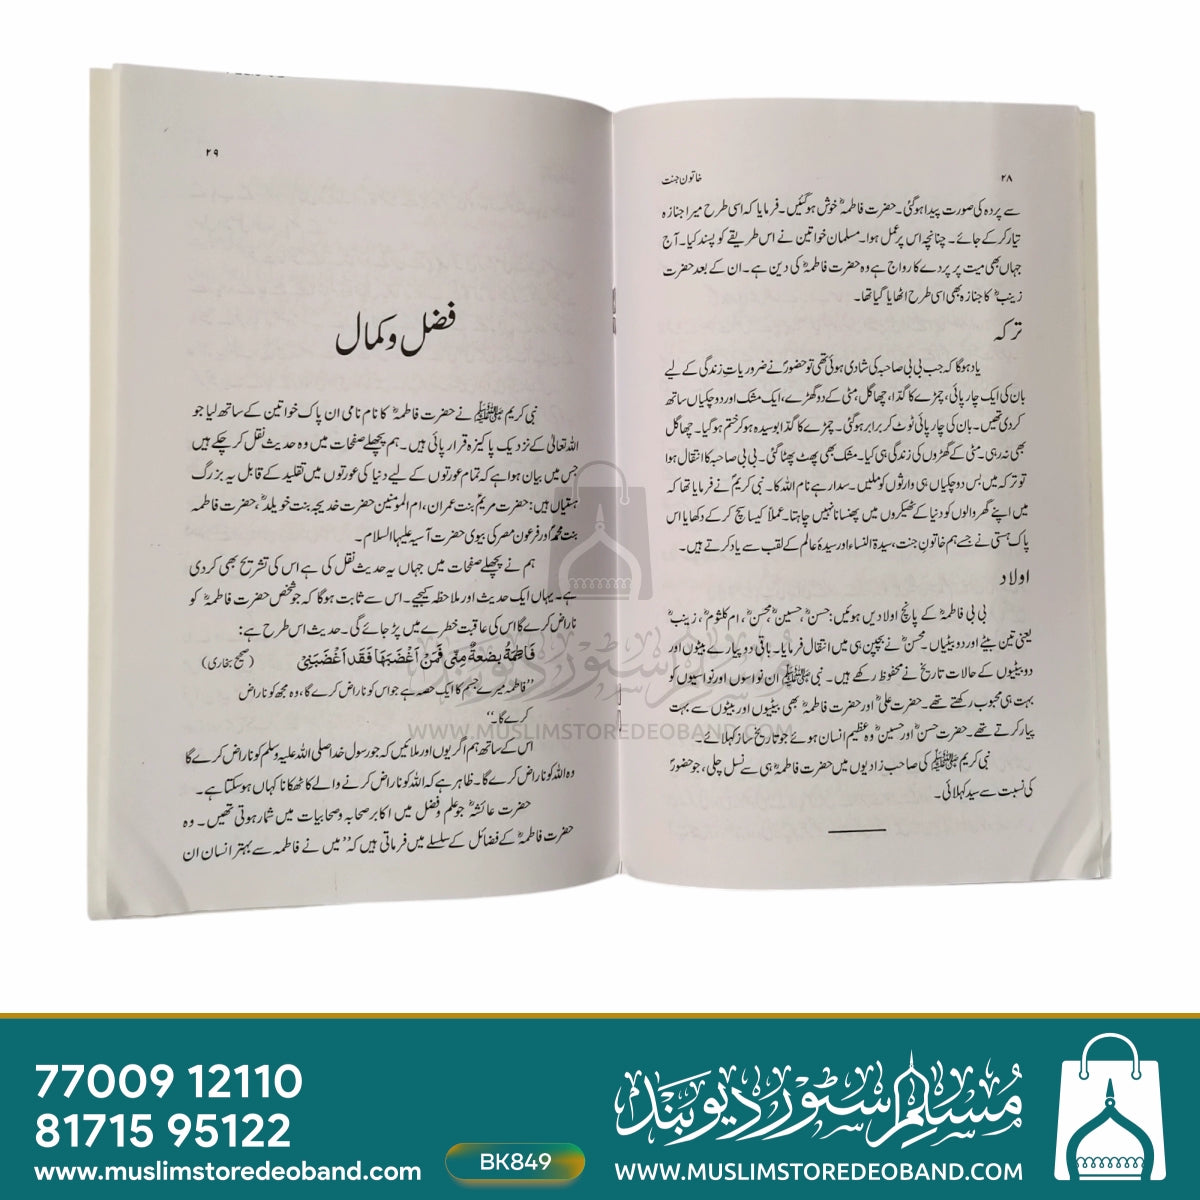 ۲۸
خاتون جنت
سے پردہ کی صورت پیدا ہوگئی۔ حضرت فاطمہؓ خوش ہوگئیں۔ فرمایا کہ اسی طرح میرا جنازہ
تیار کرکے جائے۔ چنانچہ اس پر عمل ہوا۔ مسلمان خواتین نے اس طریقے کو پسند کیا۔ آج
جہاں بھی میت پر پردے کا رواج ہے وہ حضرت فاطمہؓ کی دین ہے۔ ان کے بعد حضرت
زینبؓ کا جنازہ بھی اسی طرح اٹھایا گیا تھا۔
ترکہ
یاد ہوگا کہ جب بی بی صاحبہ کی شادی ہوئی تھی تو حضورؐ نے ضروریاتِ زندگی کے لیے
بان کی ایک چارپائی، چمڑے کا گدا، چھاگل، مٹی کے دو گھڑے، ایک مشک اور دو چکیاں ساتھ
کردی تھیں۔ بان کی چارپائی ٹوٹ کر برابر ہوگئی۔ چمڑے کا گدا بوسیدہ ہو کر ختم ہوگیا۔ چھاگل
بھی نہ رہی۔ مٹی کے گھڑوں کی زندگی ہی کیا۔ مشک بھی پھٹ پھٹا گئی۔ بی بی صاحبہ کا انتقال ہوا
تو ترکہ میں بس دو چکیاں ہی وارثوں کو ملیں۔ سدا رہے نام اللہ کا۔ نبی کریمؐ نے فرمایا تھا کہ
میں اپنے گھر والوں کو دنیا کے ٹھیکروں میں پھنسانا نہیں چاہتا۔ عملاً کیسا سچ کرکے دکھایا اس
پاک ہستی نے جسے ہم خاتونِ جنت، سیدۃ النساء اور سیدۂ عالم کے لقب سے یاد کرتے ہیں۔
اولاد
بی بی فاطمہؓ کے پانچ اولادیں ہوئیں: حسنؓ، حسینؓ، محسنؓ، ام کلثومؓ، زینبؓ
یعنی تین بیٹے اور دو بیٹیاں۔ محسنؓ نے بچپن ہی میں انتقال فرمایا۔ باقی دو پیارے بیٹوں اور
دو بیٹیوں کے حالات تاریخ نے محفوظ رکھے ہیں۔ نبی ﷺ ان نواسوں اور نواسیوں کو
بہت ہی محبوب رکھتے تھے۔ حضرت علیؓ اور حضرت فاطمہؓ بھی بیٹیوں اور بیٹوں سے بہت
پیار کرتے تھے۔ حضرت حسنؓ اور حسینؓ وہ عظیم انسان ہوئے جو تاریخ ساز کہلائے۔
نبی کریم ﷺ کی صاحب زادیوں میں حضرت فاطمہؓ ہی سے نسل چلی، جو حضورؐ
کی نسبت سے سید کہلائی۔
۲۹
فضل و کمال
نبی کریم ﷺ نے حضرت فاطمہؓ کا نام نامی ان پاک خواتین کے ساتھ لیا جو
اللہ تعالیٰ کے نزدیک پاکیزہ قرار پائی ہیں۔ ہم پچھلے صفحات میں وہ حدیث نقل کر چکے ہیں
جس میں بیان ہوا ہے کہ تمام عورتوں کے لیے دنیا کی عورتوں میں تقلید کے قابل یہ بزرگ
ہستیاں ہیں: حضرت مریمؑ بنت عمران، ام المومنین حضرت خدیجہ بنت خویلدؓ، حضرت فاطمہ
بنت محمدؐ اور فرعون مصر کی بیوی حضرت آسیہ علیہا السلام۔
ہم نے پچھلے صفحات میں جہاں یہ حدیث نقل کی ہے اس کی تشریح بھی کردی
ہے۔ یہاں ایک حدیث اور ملاحظہ کیجیے۔ اس سے ثابت ہوگا کہ جو شخص حضرت فاطمہؓ کو
ناراض کرے گا اس کی عاقبت خطرے میں پڑ جائے گی۔ حدیث اس طرح ہے:
فَاطِمَۃُ بِضْعَۃٌ مِنِّی فَمَنْ اَغْضَبَہَا فَقَدْ اَغْضَبَنِیْ (صحیح بخاری)
”فاطمہ میرے جسم کا ایک حصہ ہے جو اس کو ناراض کرے گا، وہ مجھ کو ناراض
کرے گا۔“
اس کے ساتھ ہم اگر یوں اور ملائیں کہ جو رسول خدا صلی اللہ علیہ وسلم کو ناراض کرے گا
وہ اللہ کو ناراض کرے گا۔ ظاہر ہے کہ اللہ کو ناراض کرنے والے کا ٹھکانا کہاں ہوسکتا ہے۔
حضرت عائشہؓ جو علم و فضل میں اکابر صحابہ و صحابیات میں شمار ہوتی تھیں۔ وہ
حضرت فاطمہؓ کے فضائل کے سلسلے میں فرماتی ہیں کہ ”میں نے فاطمہ سے بہتر انسان ان
مسلم سٹور دیوبند
WWW.MUSLIMSTOREDEOBAND.COM
77009 12110
81715 95122
www.muslimstoredeoband.com
BK849
مسلم سٹور دیوبند
WWW.MUSLIMSTOREDEOBAND.COM